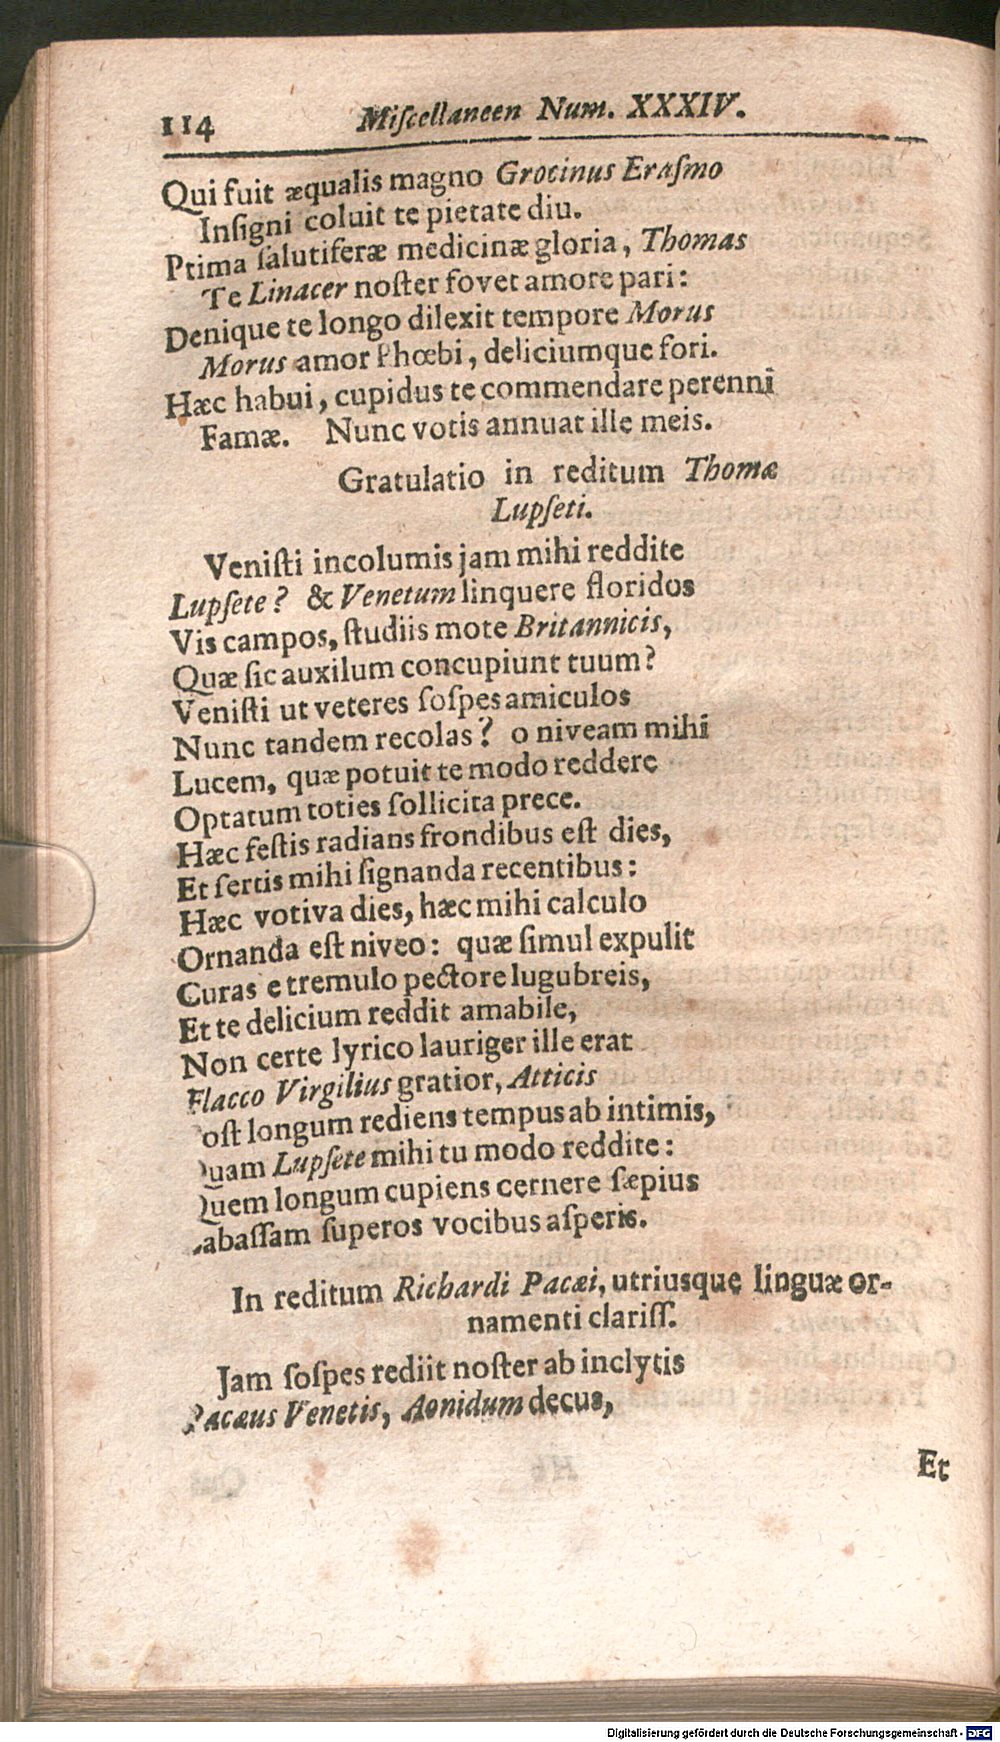 114 Miſcellaneen Num. XXXIV.
Qui fuit æqualis magno Grocinus Eraſmo
Inſigni coluit te pietate diu.
Prima ſalutiferæ medicinæ gloria, Thomas
Te Linacer noſter fovet amore pari:
Denique te longo dilexit tempore Morus
Morus amor Phœbi, deliciumque fori.
Hæc habui, cupidus te commendare perenni
Famæ. Nunc votis annuat ille meis.
Gratulatio in reditum Thomæ
Lupſeti.
Veniſti incolumis jam mihi reddite
Lupſete? & Venetum linquere floridos
Vis campos, ſtudiis mote Britannicis,
Quæ ſic auxilum concupiunt tuum?
Veniſti ut veteres ſoſpes amiculos
Nunc tandem recolas? o niveam mihi
Lucem, quæ potuit te modo reddere
Optatum toties ſollicita prece.
Hæc feſtis radians frondibus eſt dies,
Et ſertis mihi ſignanda recentibus:
Hæc votiva dies, hæc mihi calculo
Ornanda eſt niveo: quæ ſimul expulit
Curas e tremulo pectore lugubreis,
Et te delicium reddit amabile,
Non certe lyrico lauriger ille erat
Flacco Virgilius gratior, Atticis
oſt longum rediens tempus ab intimis,
uam Lupſete mihi tu modo reddite:
Quem longum cupiens cernere ſæpius
abaſſam ſuperos vocibus aſperis.
In reditum Richardi Pacæi, utriusque linguæ or-
namenti clariſſ.
Jam ſoſpes rediit noſter ab inclytis
Pacæus Venetis, Aonidum decus,
Et
Digitalisierung gefördert durch die Deutsche Forschungsgemeinschaft - DFG